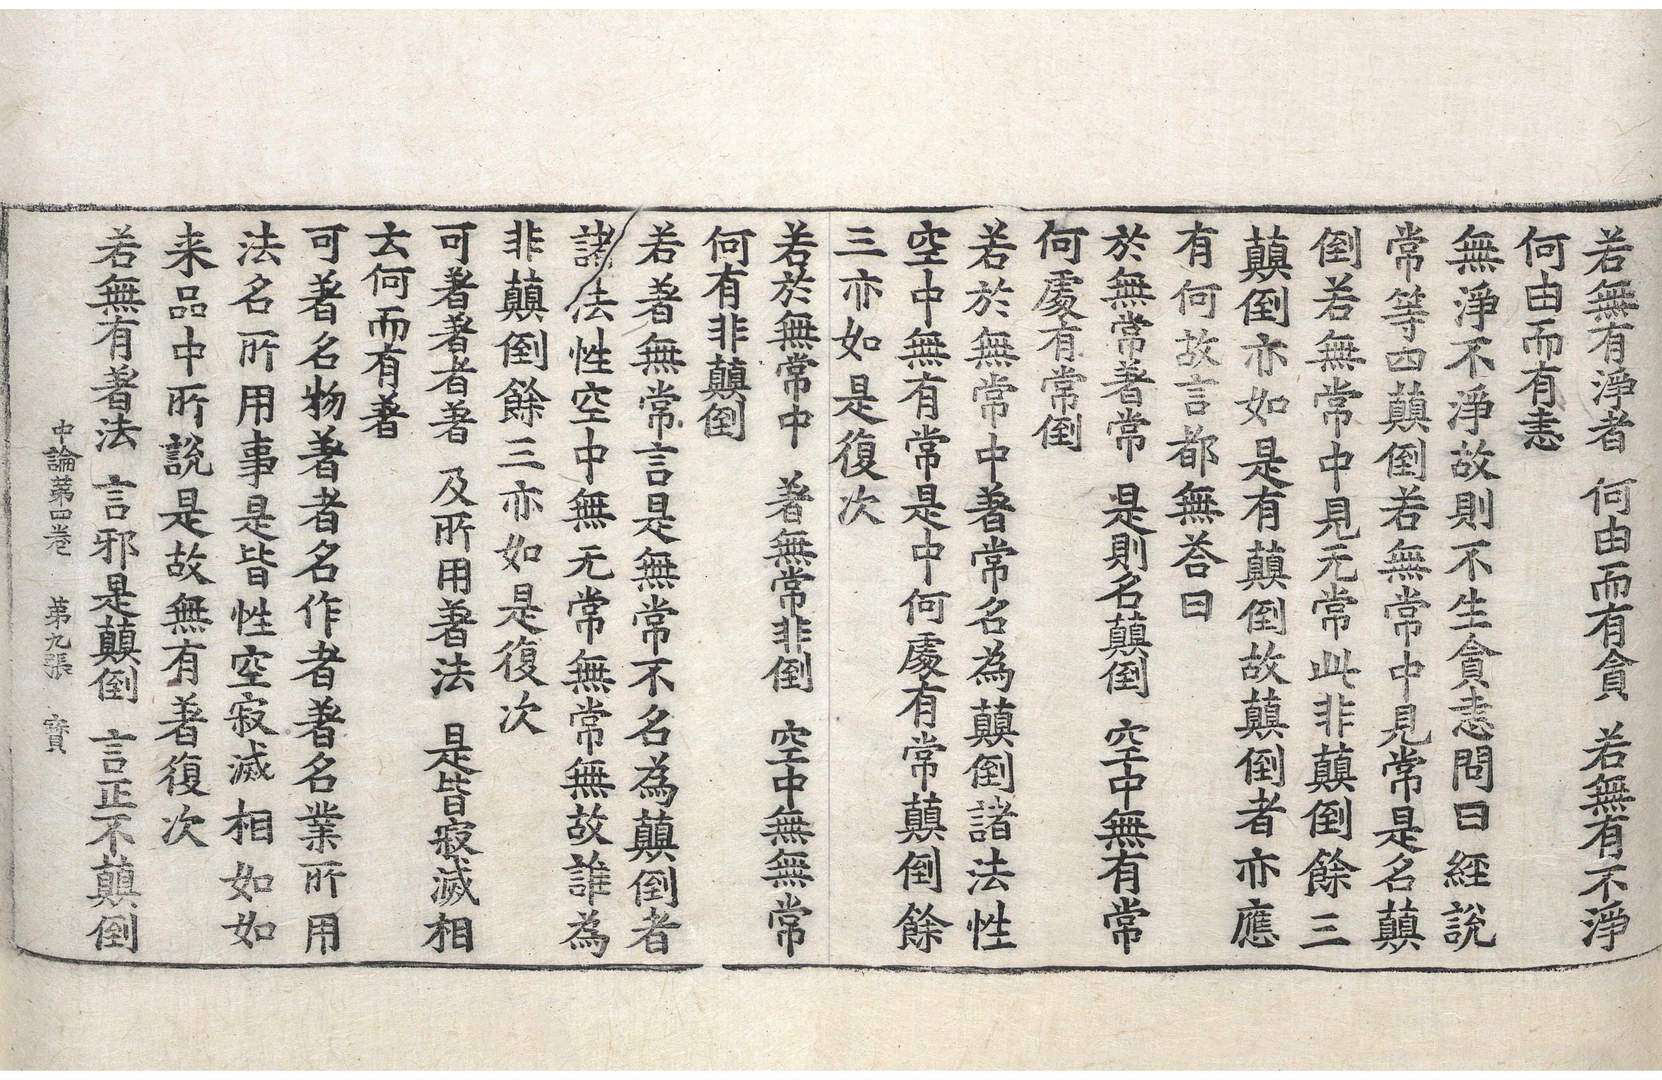 若無有淨者　何由而有貪　若無有不淨
何由而有恚
無淨不淨故則不生貪恚問曰經說
常等四顛倒若無常中見常是名顛
倒若無常中見无常此非顛倒餘三
顛倒亦如是有顛倒故顛倒者亦應
有何故言都無荅曰
於無常著常　是則名顛倒　空中無有常
何處有常倒
若於無常中著常名為顛倒諸法性
空中無有常是中何處有常顛倒餘
三亦如是復次
若於無常中　著無常非倒　空中無無常
何有非顛倒
若著無常言是無常不名為顛倒者
諸法性空中無无常無常無故誰為
非顛倒餘三亦如是復次
可著著者著　及所用著法　是皆寂滅相
云何而有著
可著名物著者名作者著名業所用
法名所用事是皆性空寂滅相如如
来品中所說是故無有著復次
若無有著法　言邪是顛倒　言正不顛倒
中論苐四卷　苐九張　寶